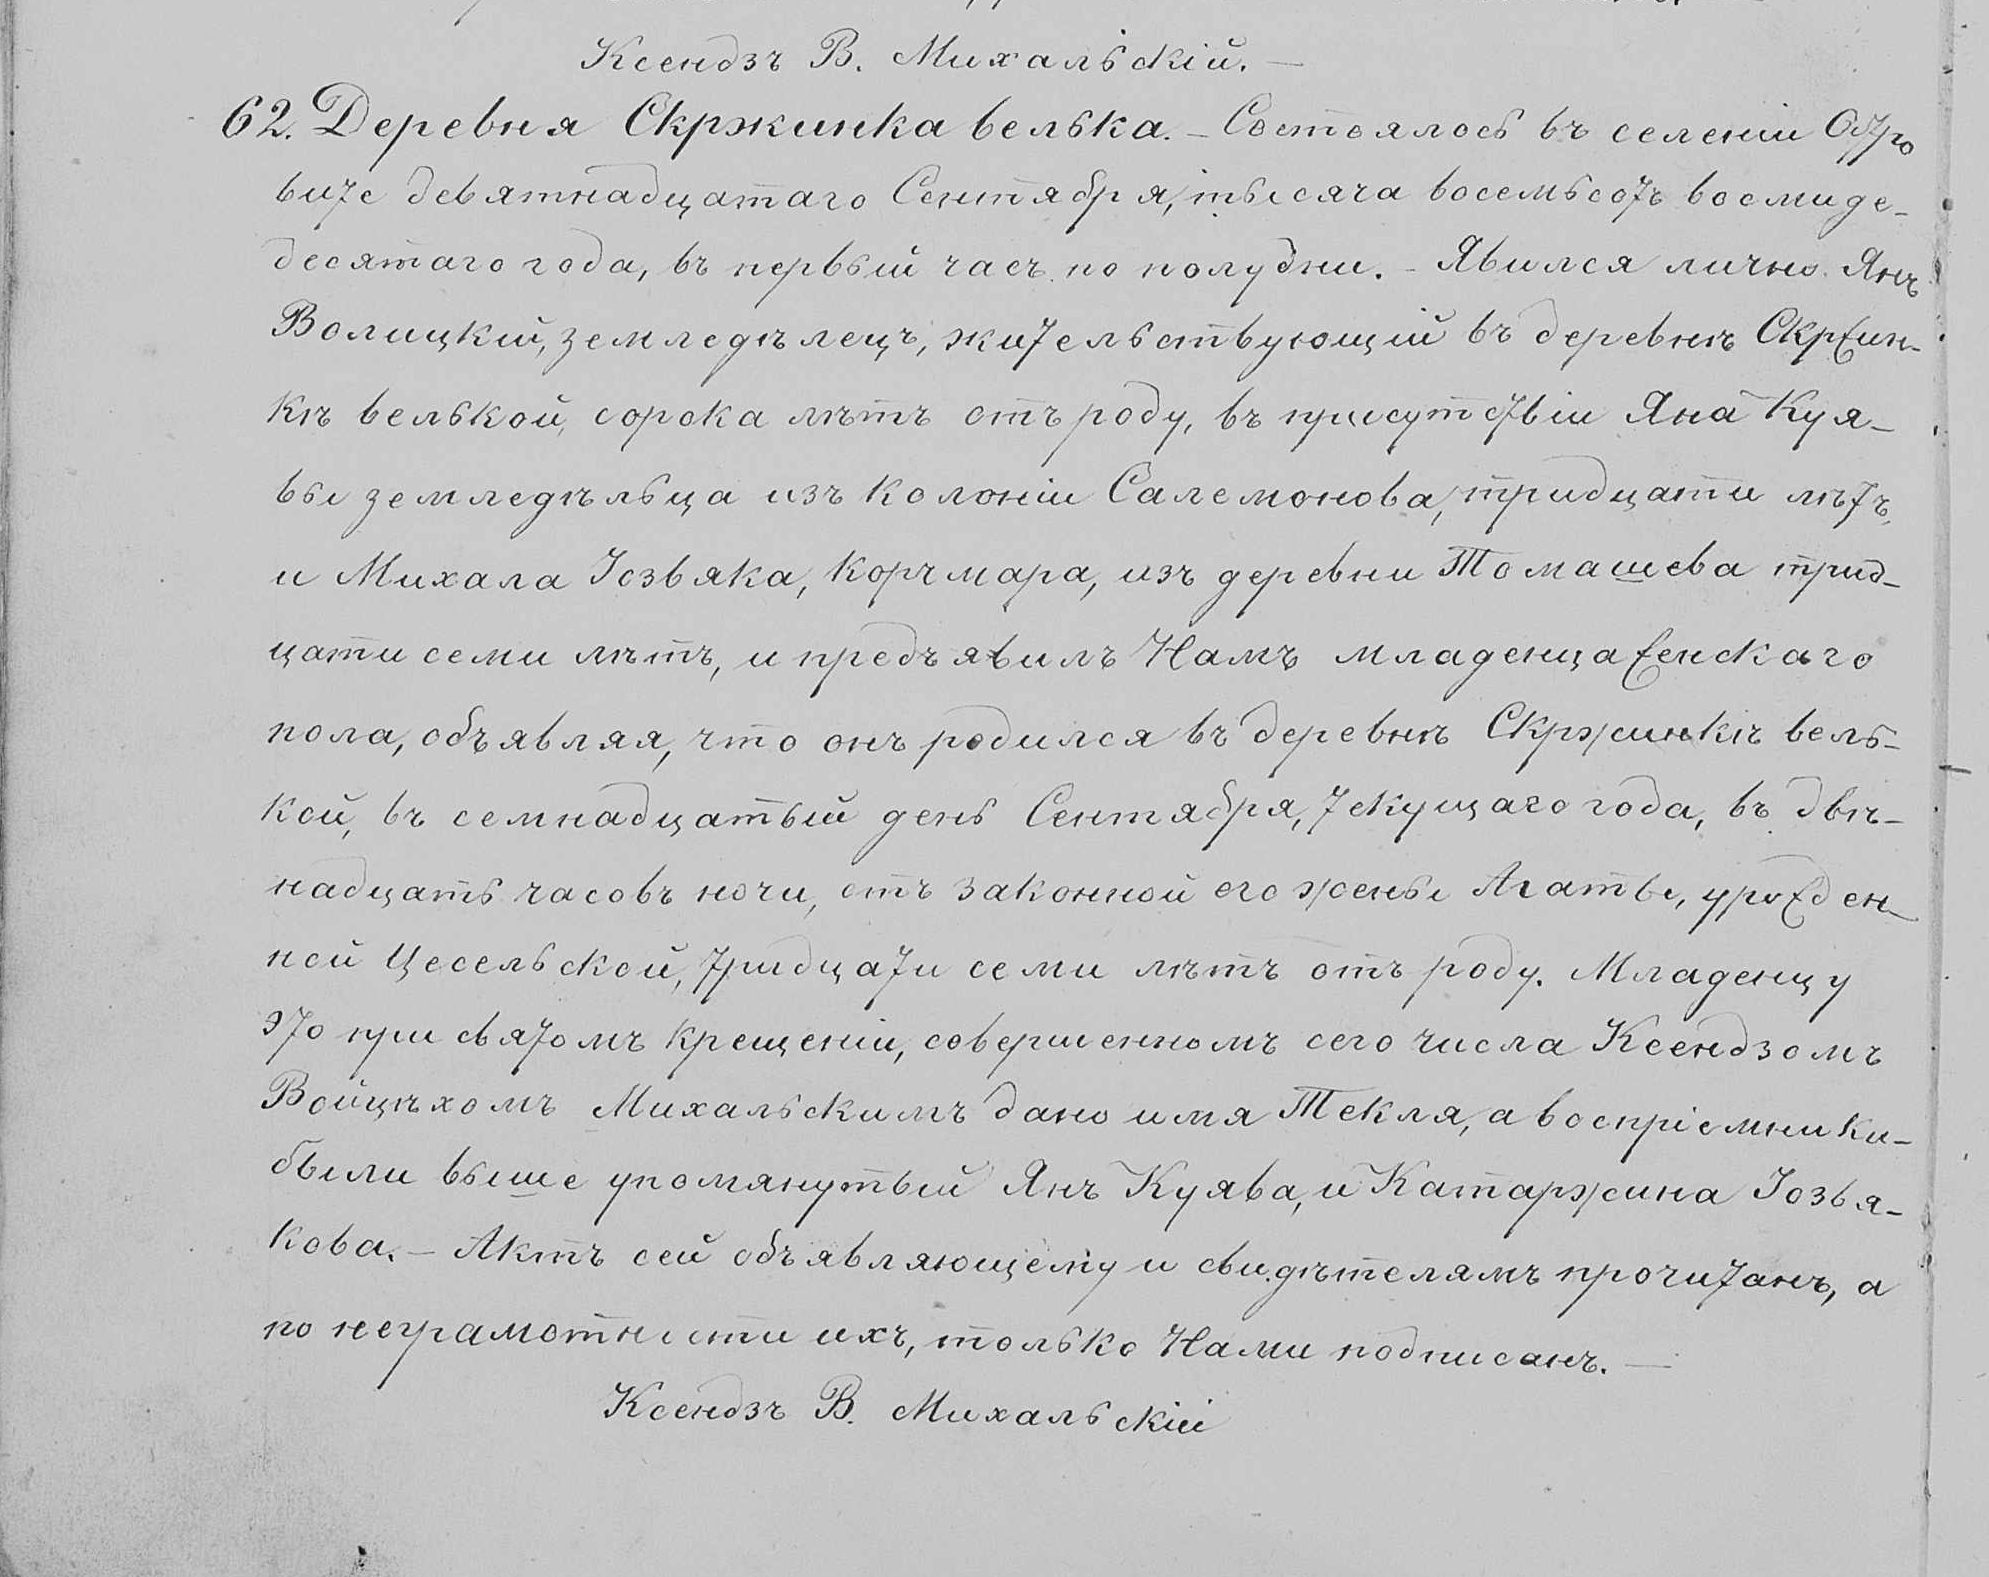 Ксендзъ В. Михальскій. —
62. Деревня Скржинка велька. – Состоялось въ селеніи Остро
вите девятнадцатаго Сентября, тысяча восемьсотъ восмиде-
десятаго года, въ первый часъ по полудни. – Явился лично Янъ
Волицкій, земледѣлецъ, жительствующій въ деревнѣ Скржин-
кѣ велькой, сорока лѣтъ отъ роду, въ присутствіи Яна Куя-
вы земледѣльца изъ колоніи Салемонова, тридцати лѣтъ,
и Михала Іозвяка, корчмара, изъ деревни Томашева трид-
цати семи лѣтъ, и предъявилъ Намъ младенца женскаго
пола, объявляя, что онъ родился въ деревнѣ Скржинкѣ вель-
кой, въ семнадцатый день Сентября, текущаго года, въ двѣ-
надцать часовъ ночи, отъ законной его жены Агаты, урожден-
ной Цесельской, тридцати семи лѣтъ отъ роду. Младенцу
это при святомъ крещеніи, совершенномъ сего числа Ксендзомъ
Войцѣхомъ Михальскимъ дано имя Текля, а воспріемники-
были выше упомянутый Янъ Куява, и Катаржина Іозвя-
кова. – Актъ сей объявляющему и свидѣтелямъ прочитанъ, а
по неграмотности ихъ, только Нами подписанъ. —
Ксендзъ В. Михальскій